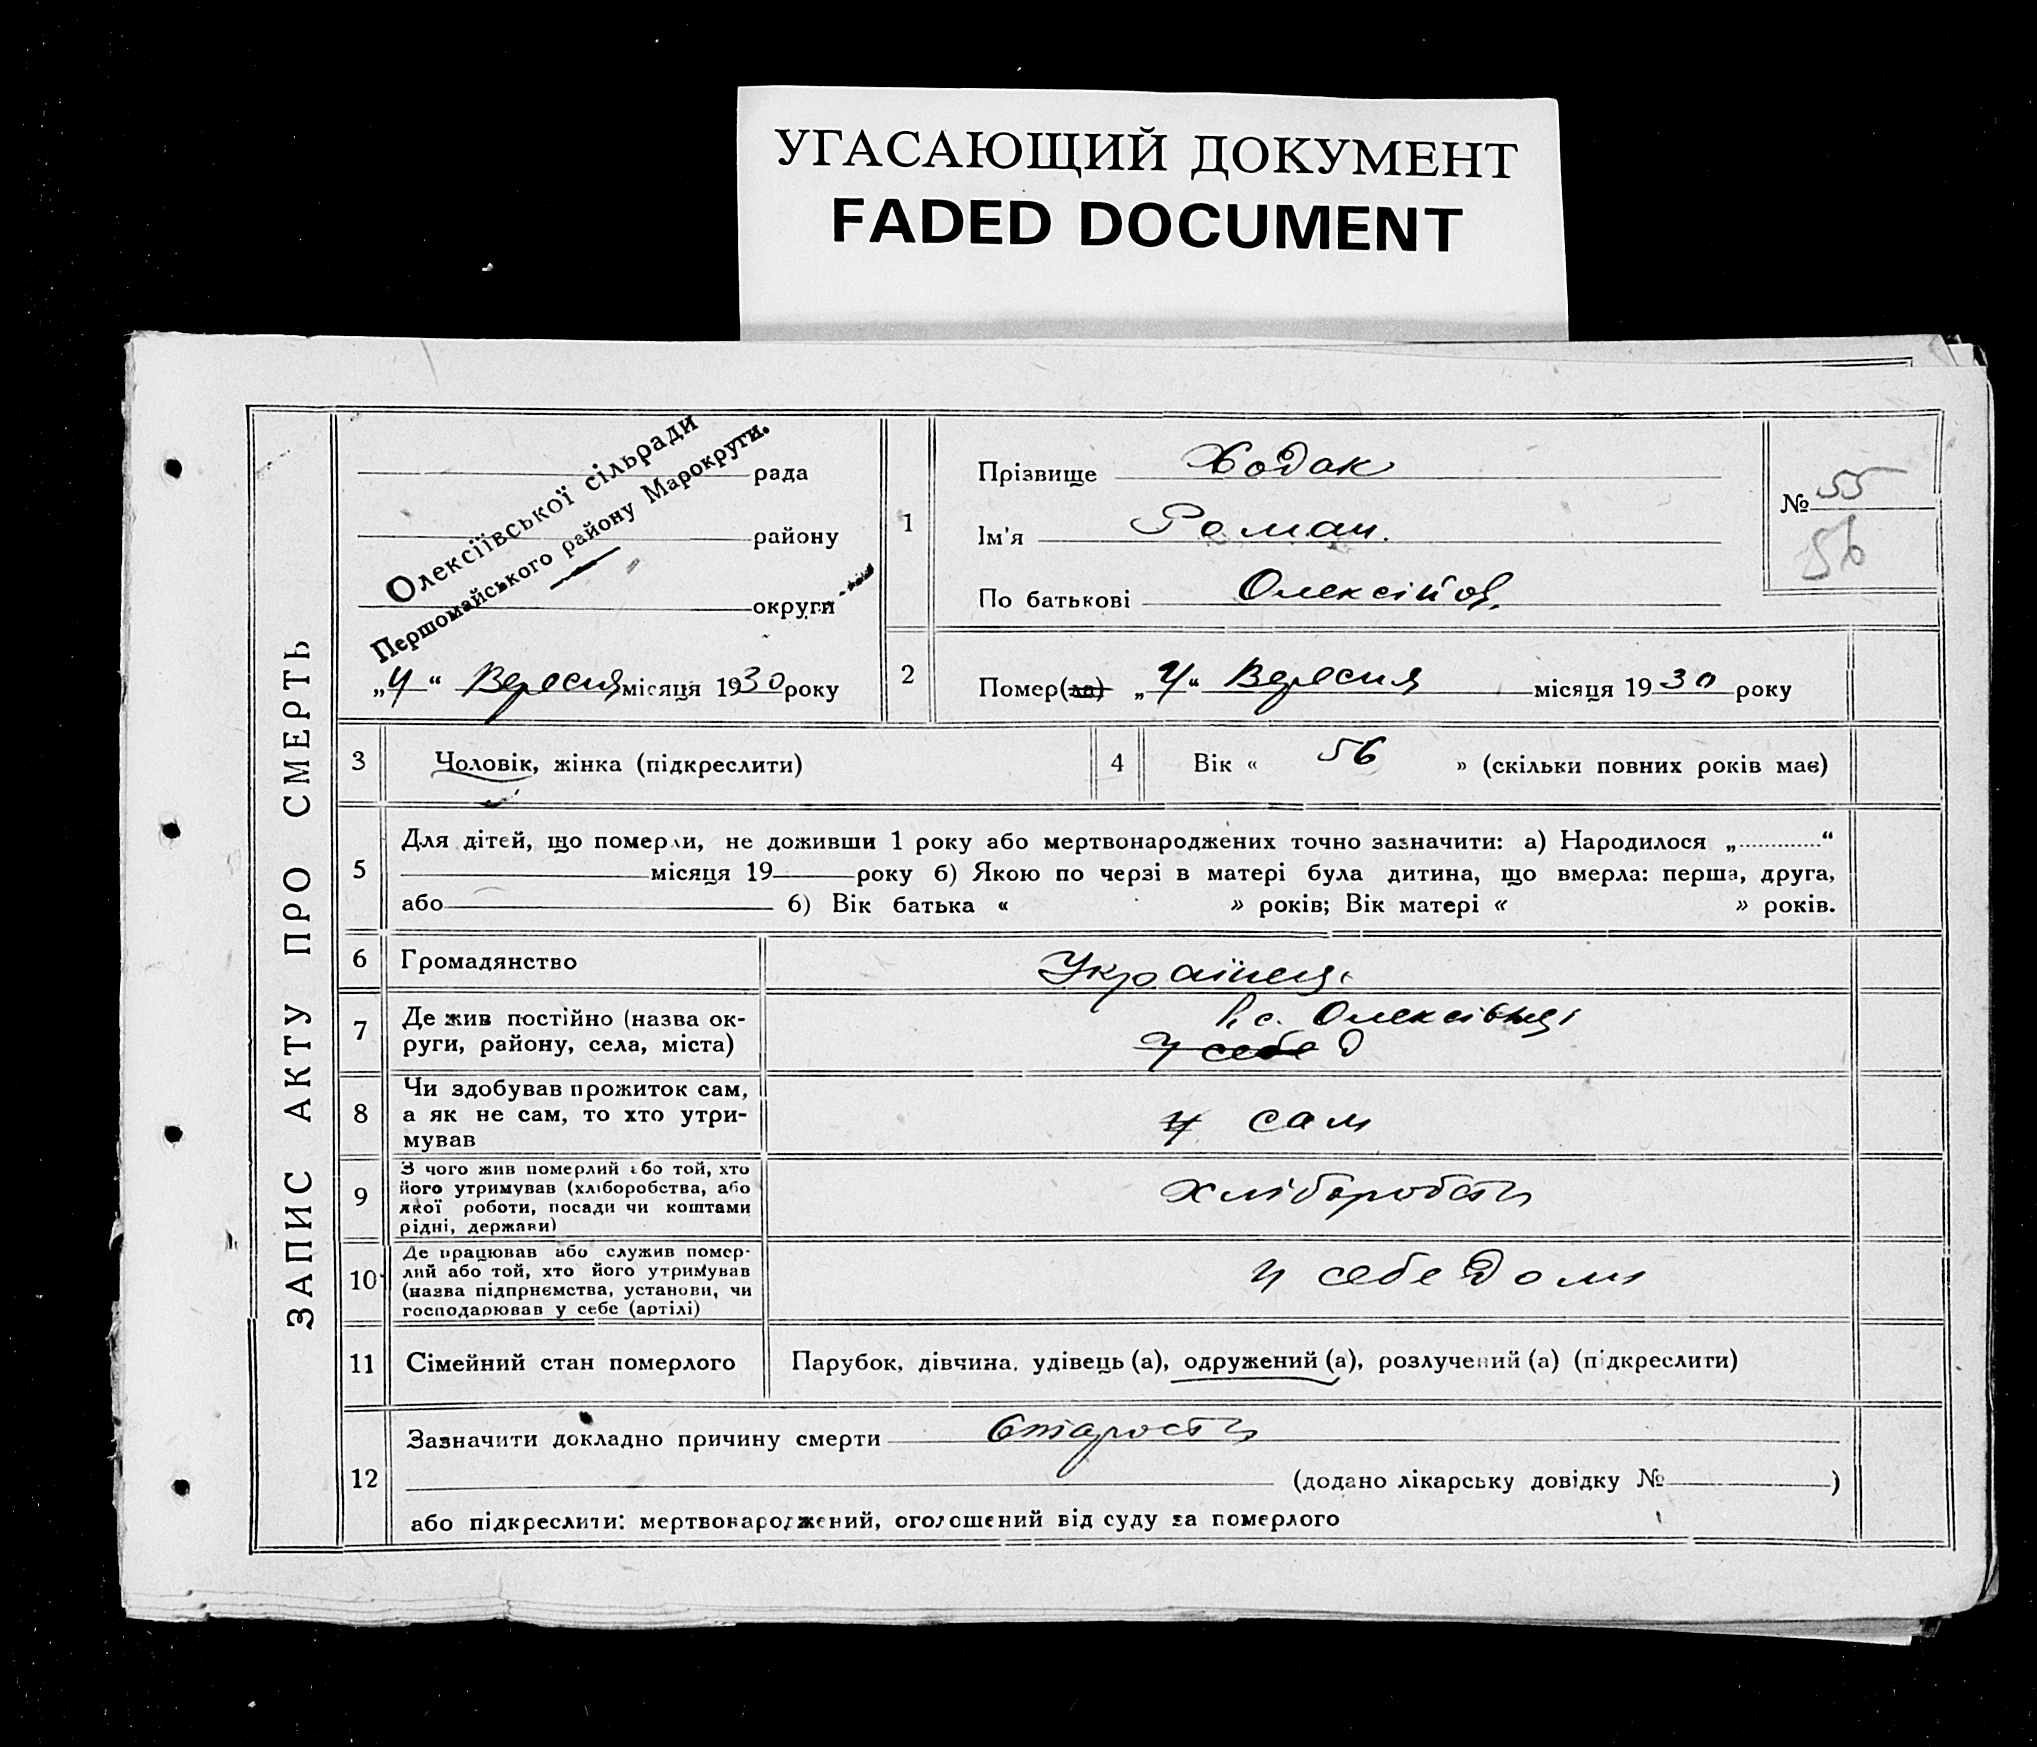 УГАСАЮЩИЙ ДОКУМЕНТ
FADED DOCUMENT
ЗАПИС АКТУ ПРО СМЕРТЬ
Олексіївської сільради
Першомайського району Марокруги.
рада
району
округи
„4“ Вересня місяця 1930 року
1
Прізвище Ходак
Ім'я Роман.
По батькові Олексійов.
№ 55
56
2
Помер(ла) „4“ Вересня місяця 1930 року
3 Чоловік, жінка (підкреслити)
4 Вік « 56 » (скільки повних років має)
5
Для дітей, що померли, не доживши 1 року або мертвонароджених точно зазначити: а) Народилося „ “
місяця 19 року б) Якою по черзі в матері була дитина, що вмерла: перша, друга,
або б) Вік батька « » років; Вік матері « » років.
6 Громадянство Українец.
7
Де жив постійно (назва ок-
руги, району, села, міста)
с. Олексівці
у себе д
8
Чи здобував прожиток сам,
а як не сам, то хто утри-
мував
у сам
9
З чого жив померлий або той, хто
його утримував (хліборобства, або
якої роботи, посади чи коштами
рідні, держави)
Хліборобств
10
Де працював або служив помер-
лий або той, хто його утримував
(назва підприємства, установи, чи
господарював у себе (артілі)
у себе дома
11 Сімейний стан померлого Парубок, дівчина, удівець (а), одружений (а), розлучений (а) (підкреслити)
12
Зазначити докладно причину смерти Старости
(додано лікарську довідку № )
або підкреслити: мертвонароджений, оголошений від суду за померлого